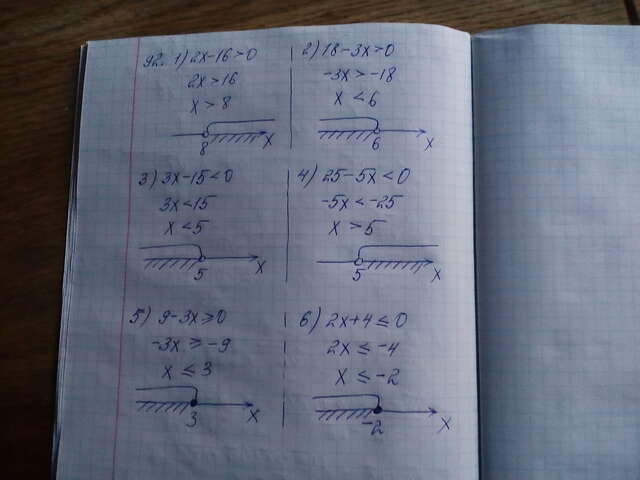 92. 1) 2x-16>0
2x>16
x>8
8 x
2) 18-3x>0
-3x>-18
x<6
6 x
3) 3x-15<0
3x<15
x<5
5 x
4) 25-5x<0
-5x<-25
x>5
5 x
5) 9-3x≥0
-3x≥-9
x≤3
3 x
6) 2x+4≤0
2x≤-4
x≤-2
-2 x